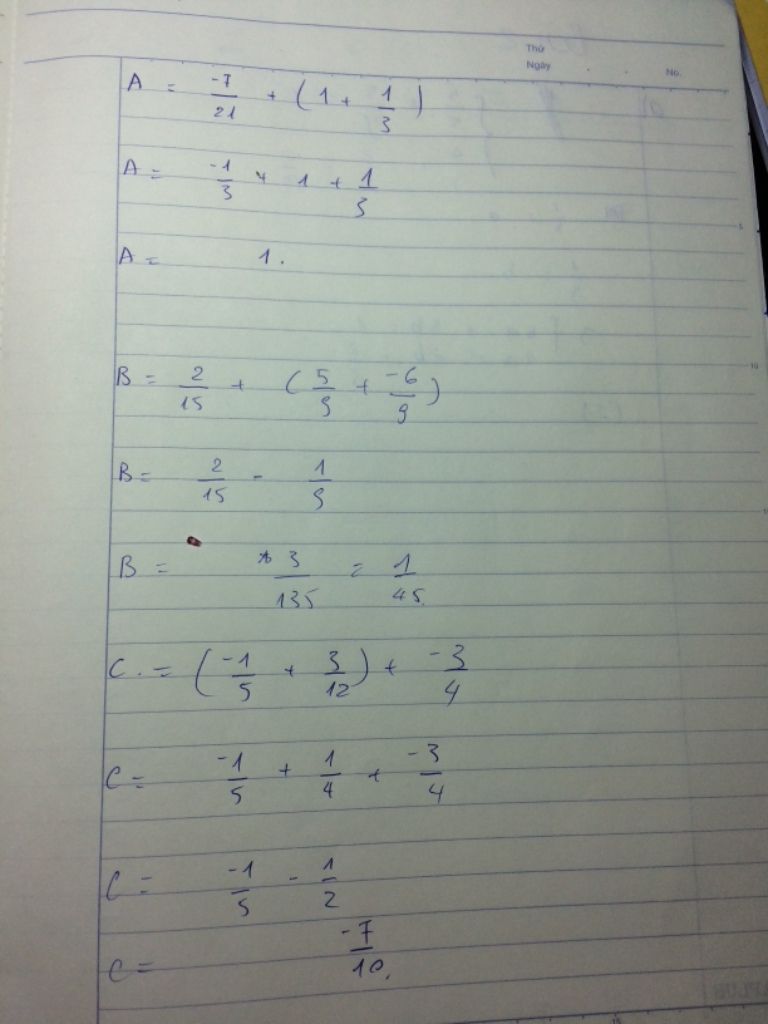 Thứ
Ngày . . No.
A = -7/21 + (1 + 1/3)
A = -1/3 + 1 + 1/3
A = 1.
B = 2/15 + (5/9 + -6/9)
B = 2/15 - 1/9
B = 3/135 = 1/45.
C. = (-1/5 + 3/12) + -3/4
C = -1/5 + 1/4 + -3/4
C = -1/5 - 1/2
C = -7/10.